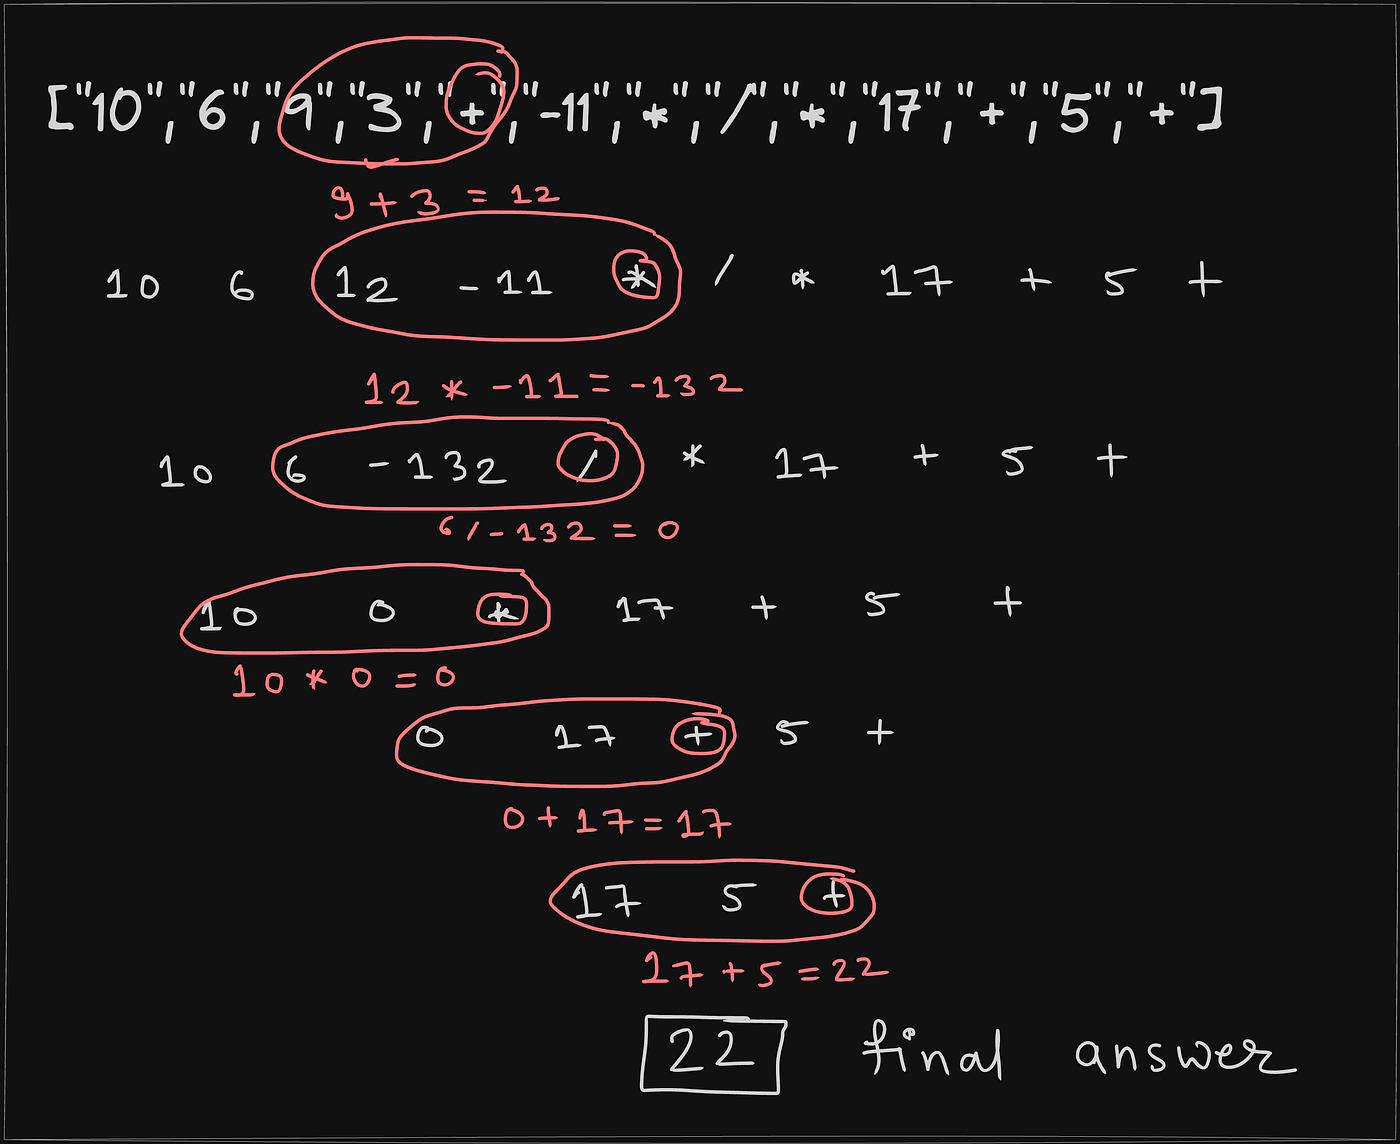 ["10","6","9","3","+","-11","*","/","*","17","+","5","+"]
9 + 3 = 12
10 6 12 -11 * / * 17 + 5 +
12 * -11 = -132
10 6 -132 / * 17 + 5 +
6 / -132 = 0
10 0 * 17 + 5 +
10 * 0 = 0
0 17 + 5 +
0 + 17 = 17
17 5 +
17 + 5 = 22
22 final answer